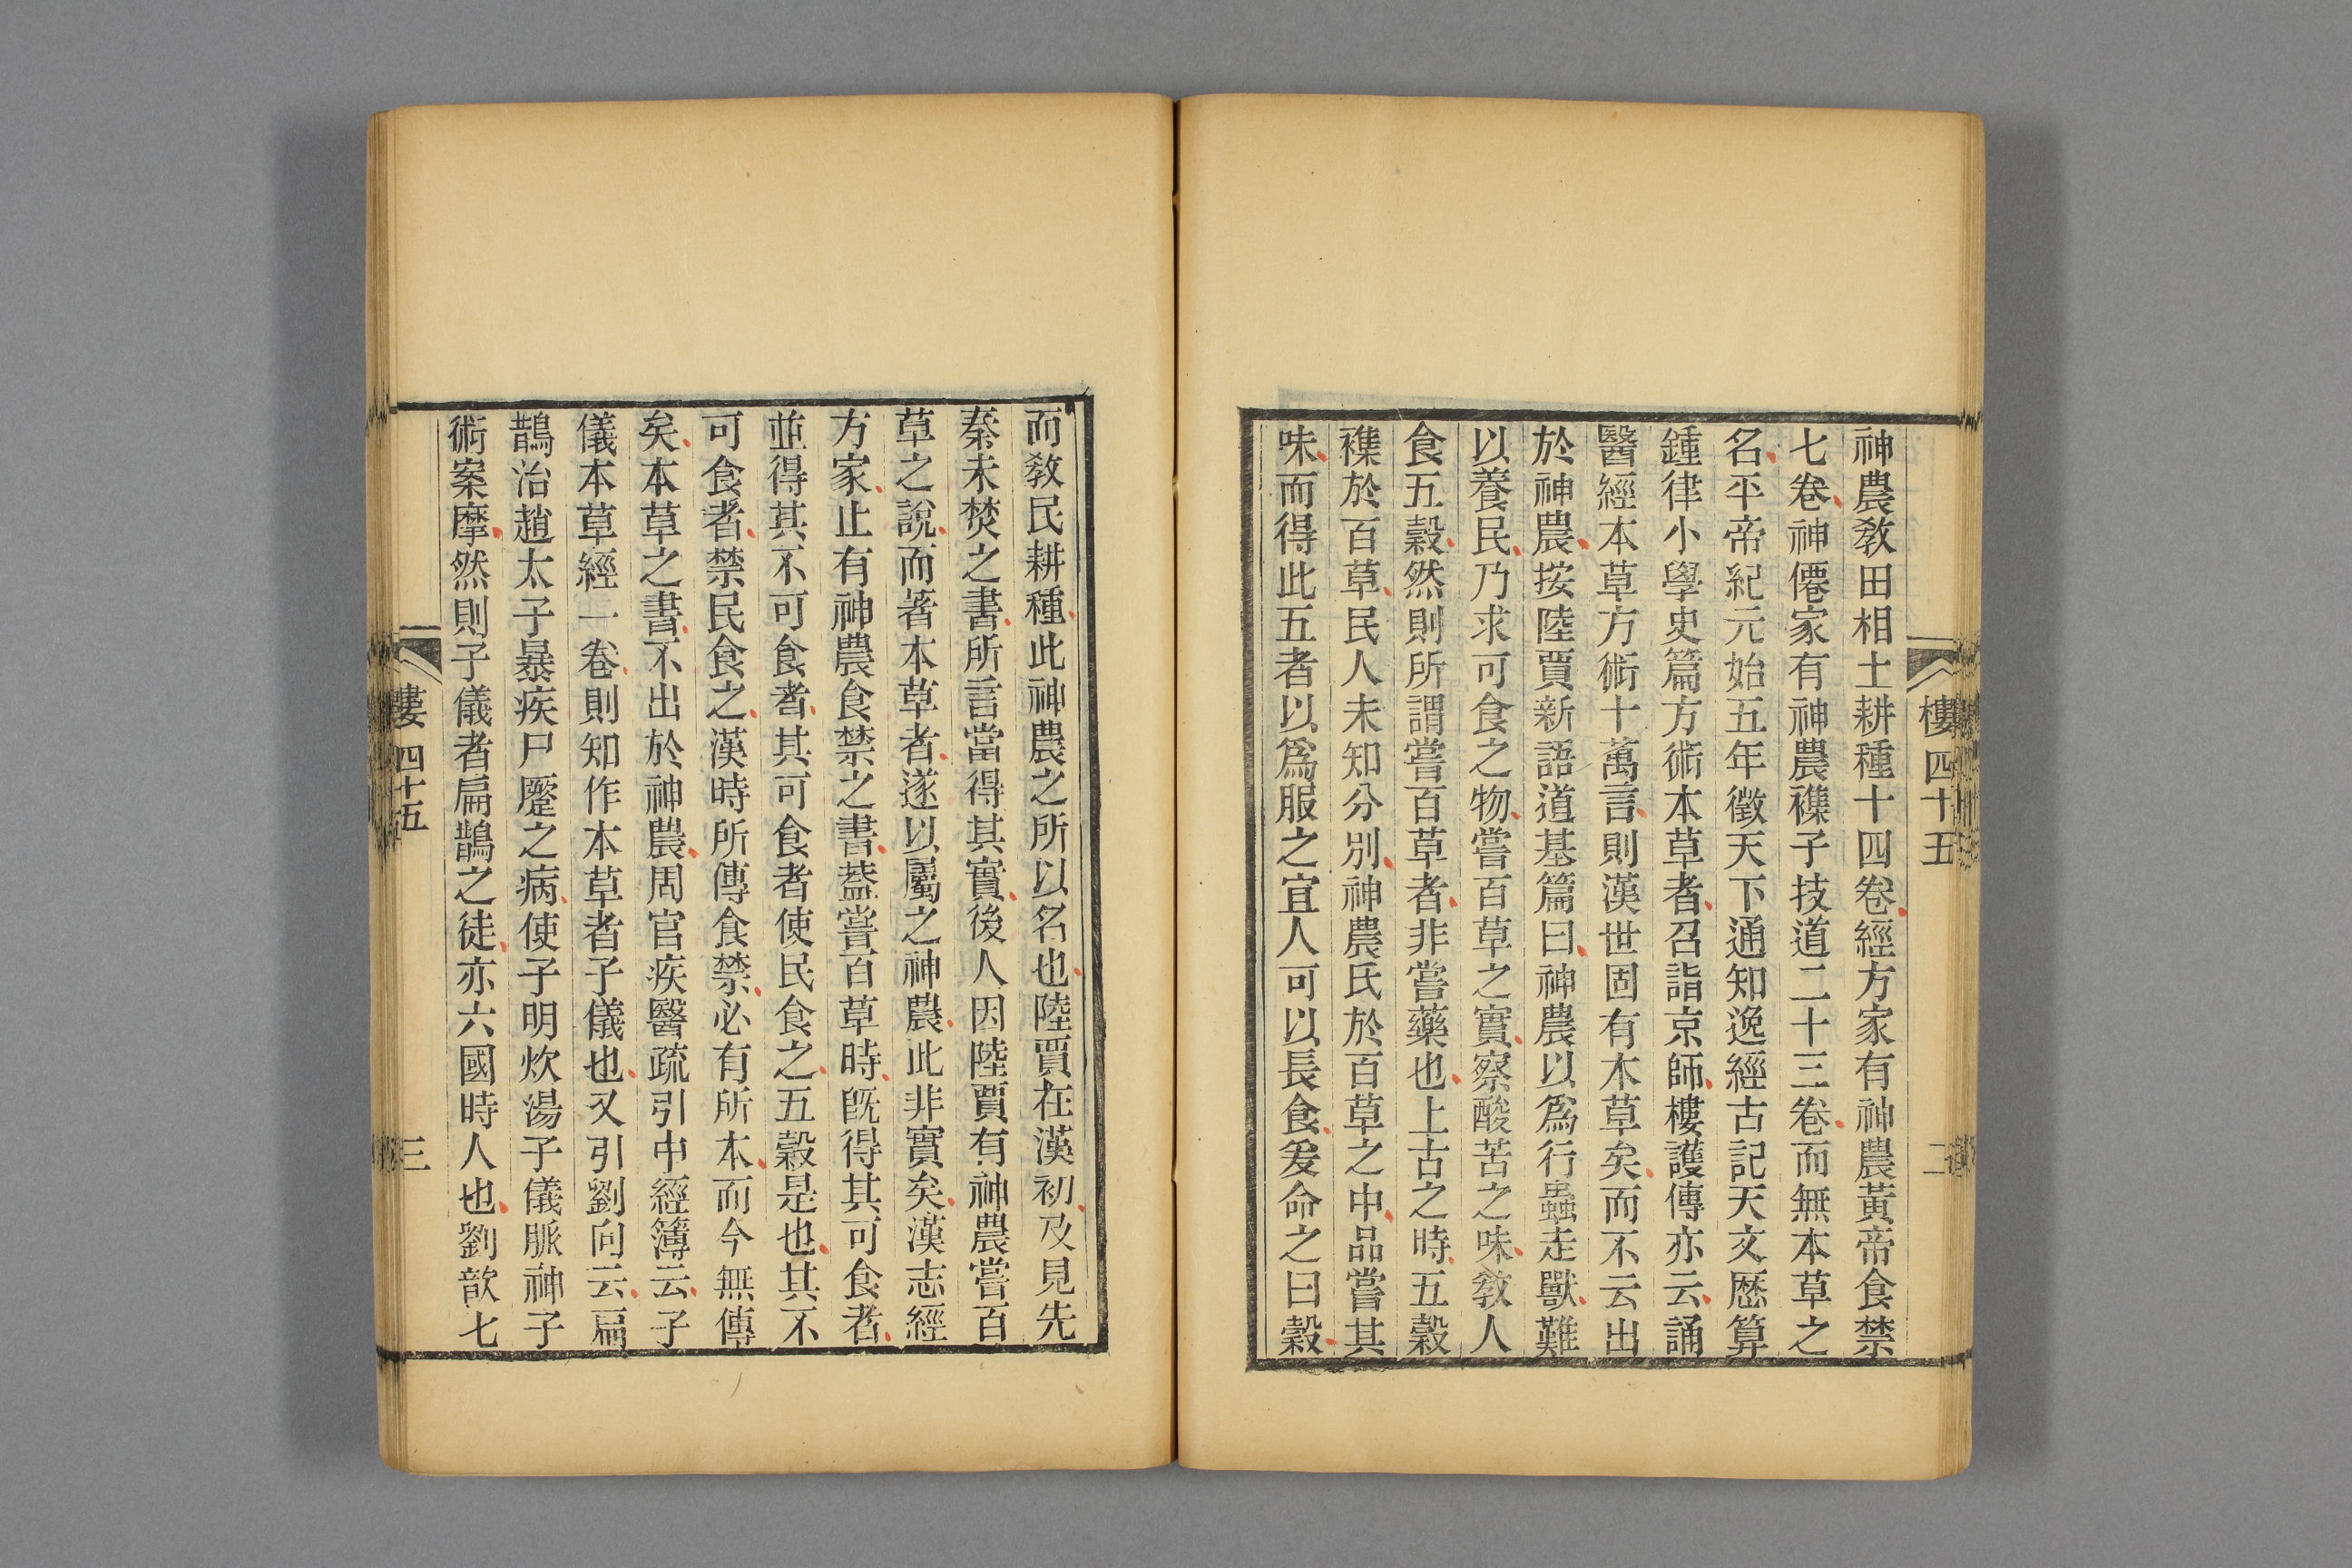 樓 四十五
二
神農敎田相土耕種十四卷經方家有神農黃帝食禁
七卷神僊家有神農襍子技道二十三卷而無本草之
名平帝紀元始五年徵天下通知逸經古記天文歷算
鍾律小學史篇方術本草者召詣京師樓護傳亦云誦
醫經本草方術十萬言則漢世固有本草矣而不云出
於神農按陸賈新語道基篇曰神農以爲行蟲走獸難
以養民乃求可食之物嘗百草之實察酸苦之味敎人
食五穀然則所謂嘗百草者非嘗藥也上古之時五穀
襍於百草民人未知分別神農氏於百草之中品嘗其
味而得此五者以爲服之宜人可以長食爰命之曰穀
而敎民耕種此神農之所以名也陸賈在漢初及見先
秦未焚之書所言當得其實後人因陸賈有神農嘗百
草之說而著本草者遂以屬之神農此非實矣漢志經
方家止有神農食禁之書葢嘗百草時旣得其可食者
並得其不可食者其可食者使民食之五穀是也其不
可食者禁民食之漢時所傳食禁必有所本而今無傳
矣本草之書不出於神農周官疾醫疏引中經簿云子
儀本草經一卷則知作本草者子儀也又引劉向云扁
鵲治趙太子暴疾尸蹷之病使子明炊湯子儀脈神子
術案摩然則子儀者扁鵲之徒亦六國時人也劉歆七
樓 四十五
三